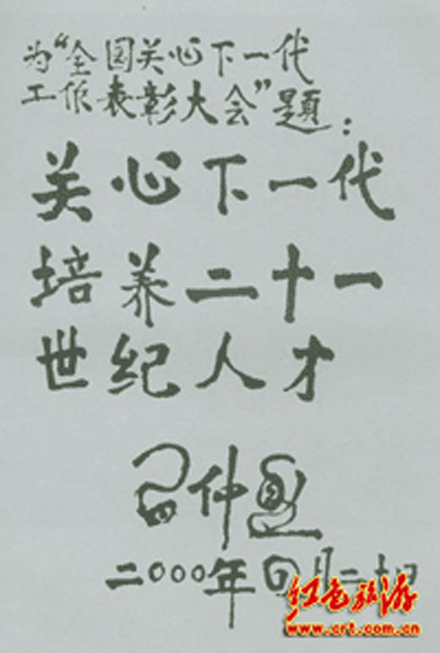 为“全国关心下一代
工作表彰大会”题：
关心下一代
培养二十一
世纪人才
习仲勋
二〇〇〇年四月二十日
红色旅游
www.crt.com.cn